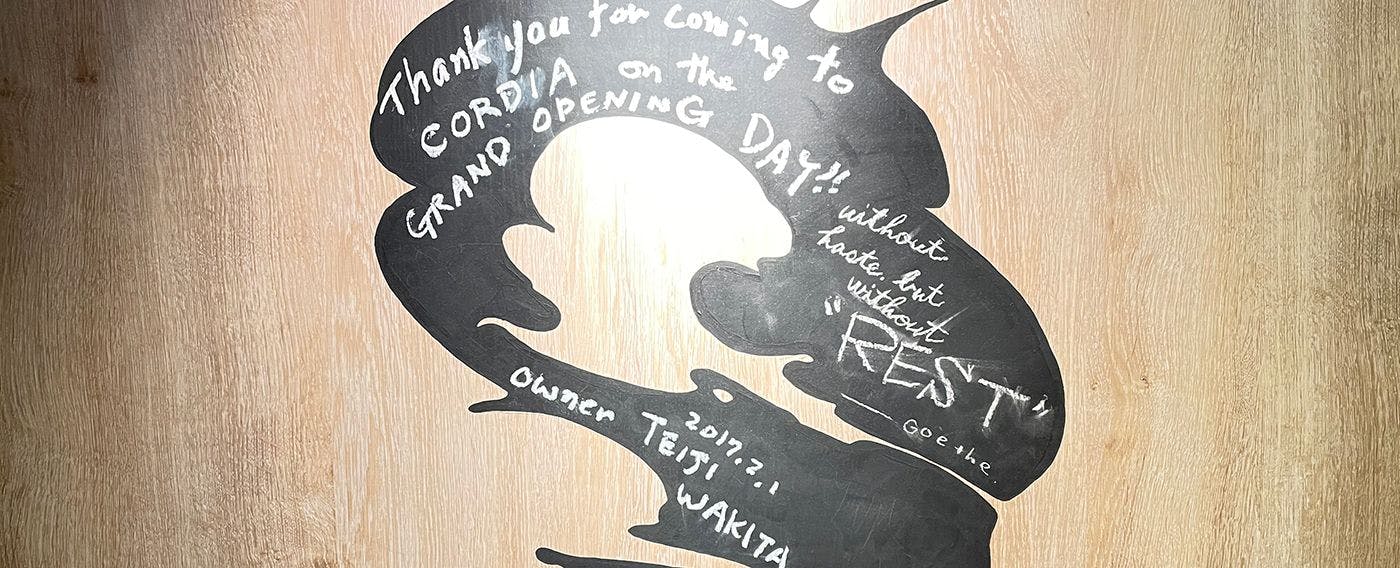 Thank you for coming to
CORDIA on the
GRAND OPENING DAY!!
without
haste. but
without
"REST"
— Goethe.
2017.2.1
owner TEIJI
WAKITA